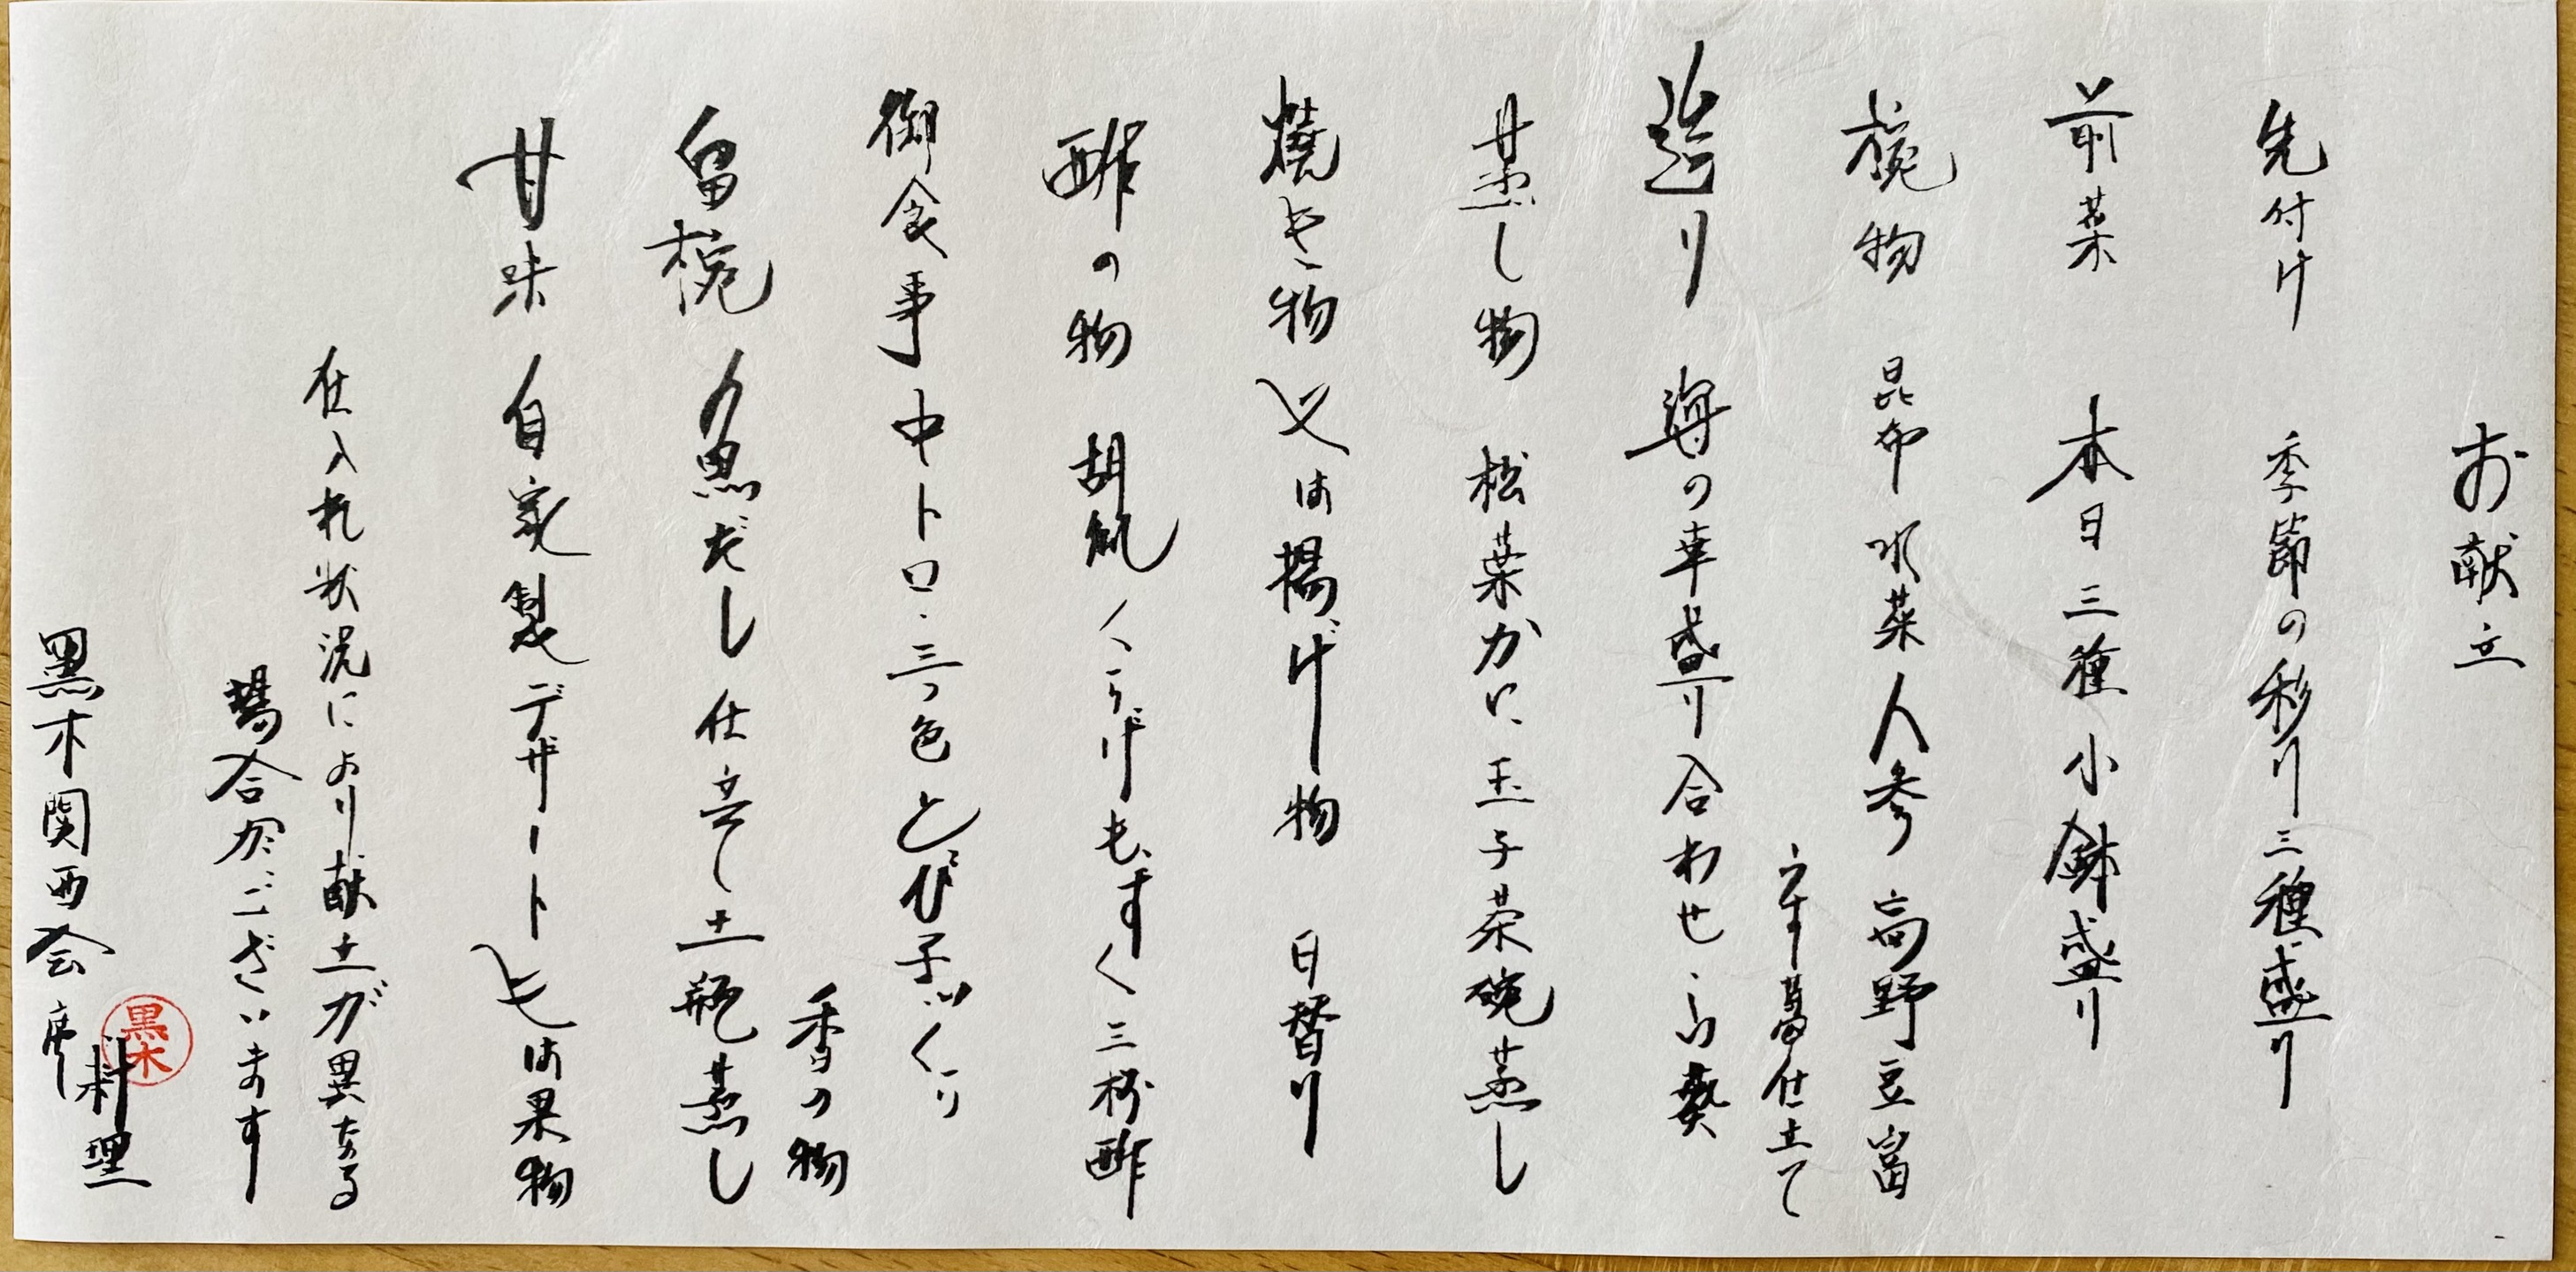 お献立
先付け 季節の彩り三種盛り
前菜 本日三種小鉢盛り
椀物 昆布 水菜 人参 高野豆富
うす葛仕土て
造り 海の幸盛り合わせ
蒸し物 松葉かに玉子茶碗蒸し
焼き物又は揚げ物 日替り
酢の物 胡瓜 くらげ もずく 三杯酢
御食事 中トロ 三色 とび子 づくり
香の物
留椀 魚だし仕立て土瓶蒸し
甘味 自家製デザート又は果物
仕入れ状況により献立が異なる
場合がございます
黒木関西会席
料理
黒木